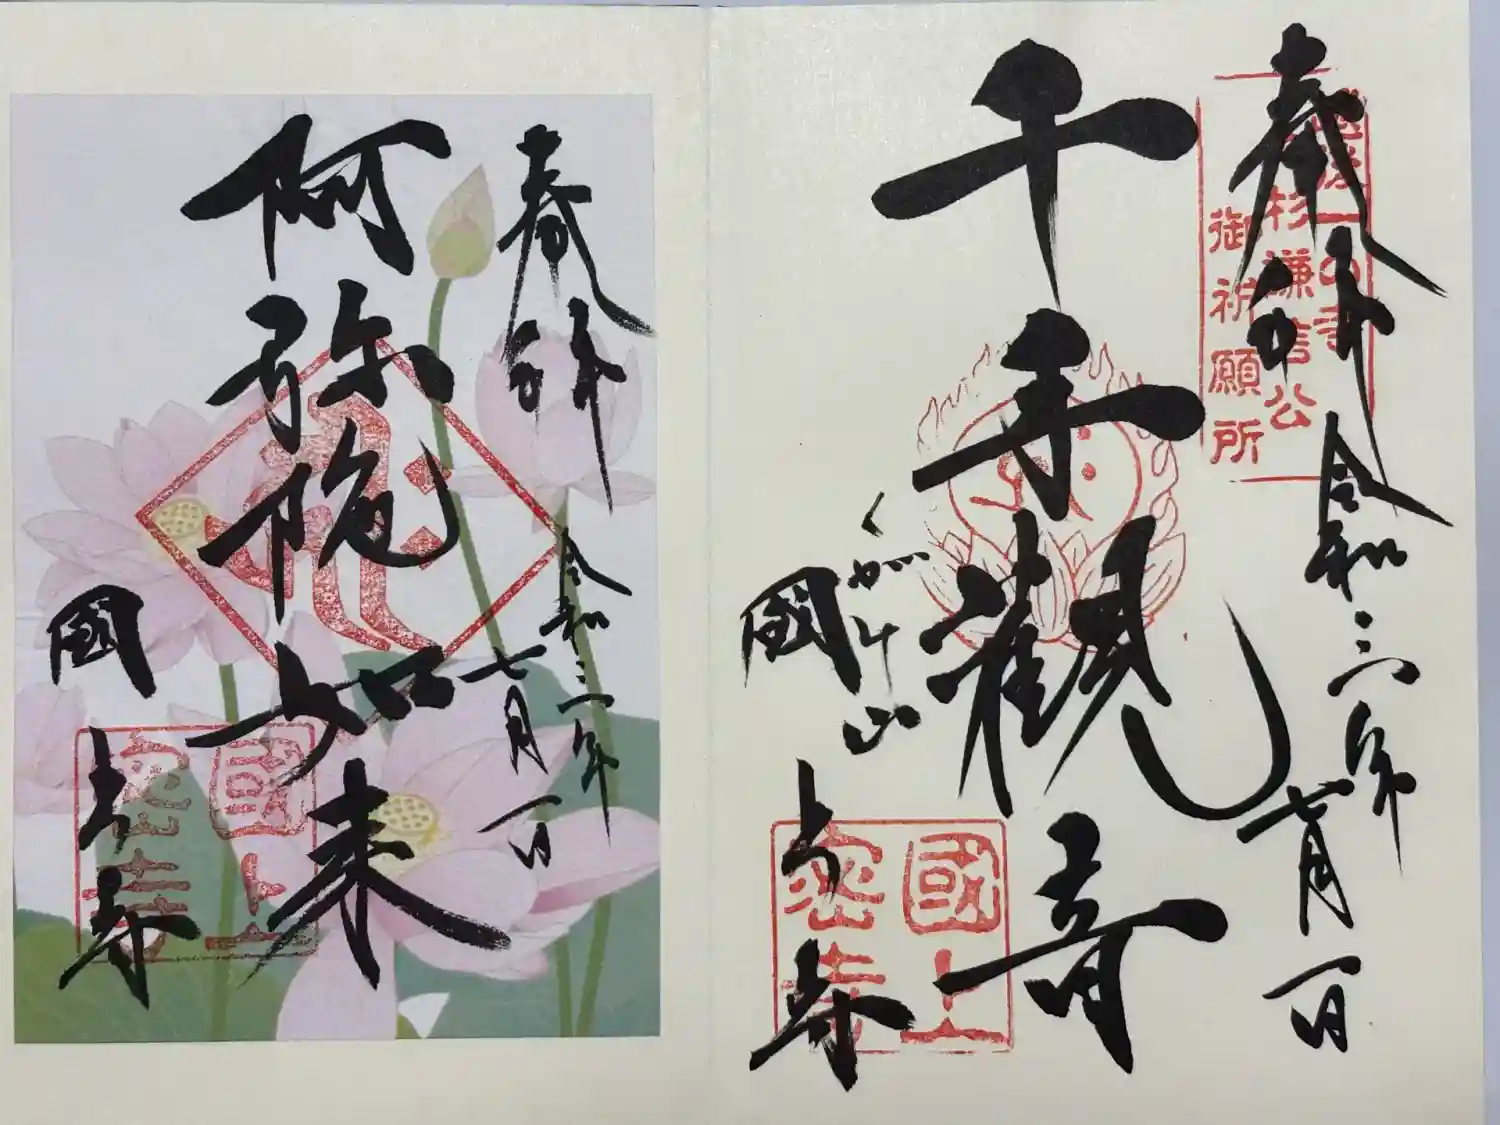 奉拝
令和三年七月一日
越後一の寺
上杉謙信公
御祈願所
千手観音
くがみ山
國上寺
國上密寺
奉拝
令和三年
七月一日
阿弥陀如来
國上寺
國上密寺